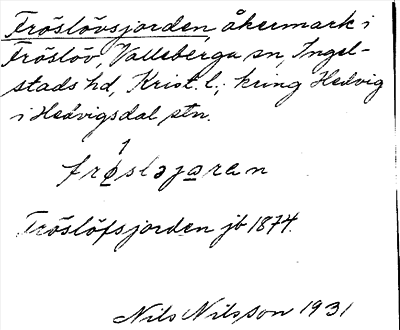 Fröslövsjorden, åkermark i
Fröslöv, Valleberga sn, Ingel-
stads hd, Krist. l.; kring Hedvig
i Hedvigsdal stn.
1
frǫsləjǫrən
Fröslöfsjorden jb 1874.
Nils Nilsson 1931